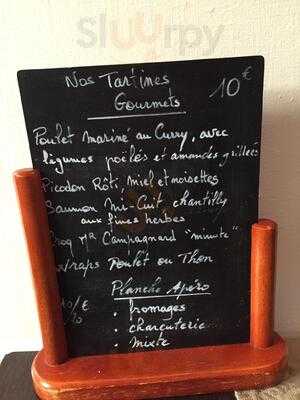 Sluurpy
Nos Tartines
Gourmets
10€
Poulet mariné au Curry, avec
légumes poêlés et amandes grillées
Picodon Rôti, miel et noisettes
Saumon Mi-Cuit, chantilly
aux fines herbes
Campagnard "minute"
Poulet ou Thon
Planche Apéro
. fromages
. charcuterie
. mixte